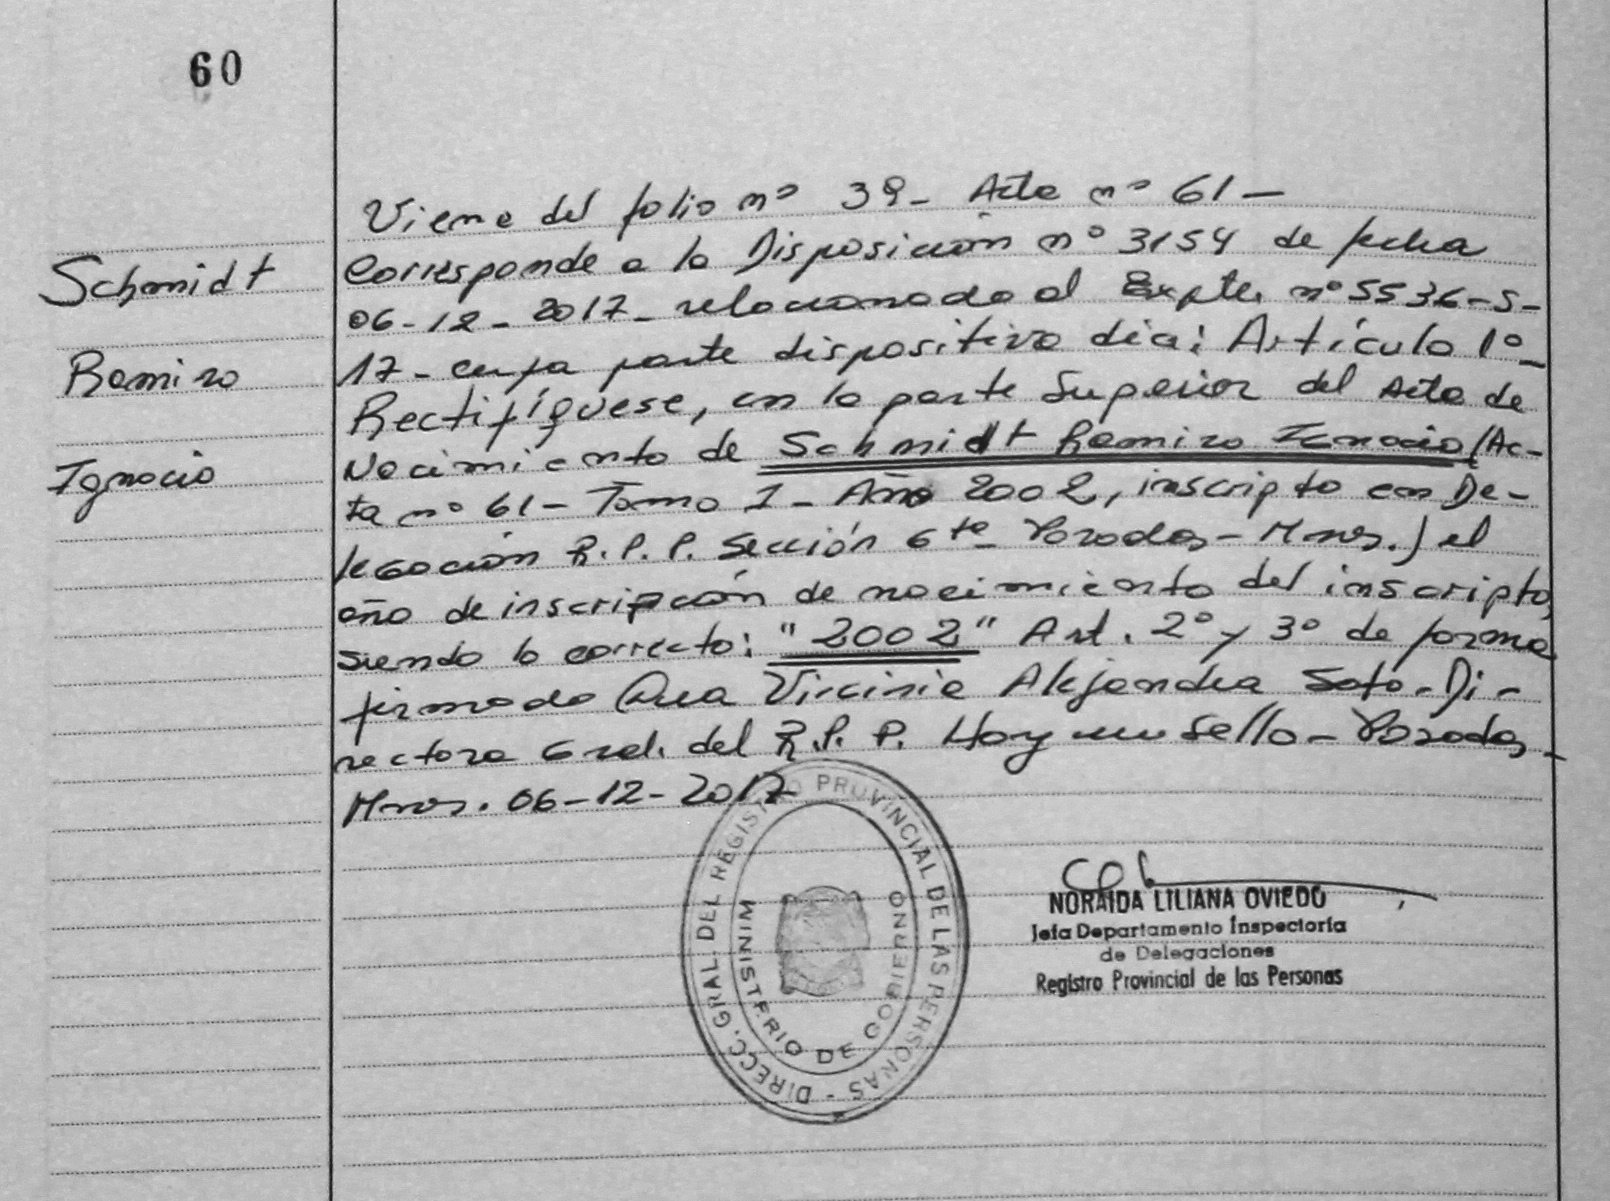 60
Schmidt
Ramiro
Ignacio
Viene del folio nº 39- Acta nº 61-
Corresponde a la Disposición nº 3154 de fecha
06-12-2017- relacionado al Expte. nº 5536-S-
17- cuya parte dispositiva dice: Artículo 1º-
Rectifíquese, en la parte Superior del Acta de
Nacimiento de Schmidt Ramiro Ignacio (Ac-
ta nº 61- Tomo I- Año 2002, inscripto en De-
legación R.P.P. Sección 6ta- Posadas- Mnes.) el
año de inscripción de nacimiento del inscripto,
siendo lo correcto: "2002" Art. 2º y 3º de forma
firmado Dra Virginia Alejandra Soto- Di-
rectora Gral. del R.P.P. Hay un sello- Posadas-
Mnes. 06-12-2017
DIRECC. GRAL. DEL REGISTRO PROVINCIAL DE LAS PERSONAS -
MINISTERIO DE GOBIERNO
NORAIDA LILIANA OVIEDO
Jefa Departamento Inspectoría
de Delegaciones
Registro Provincial de las Personas